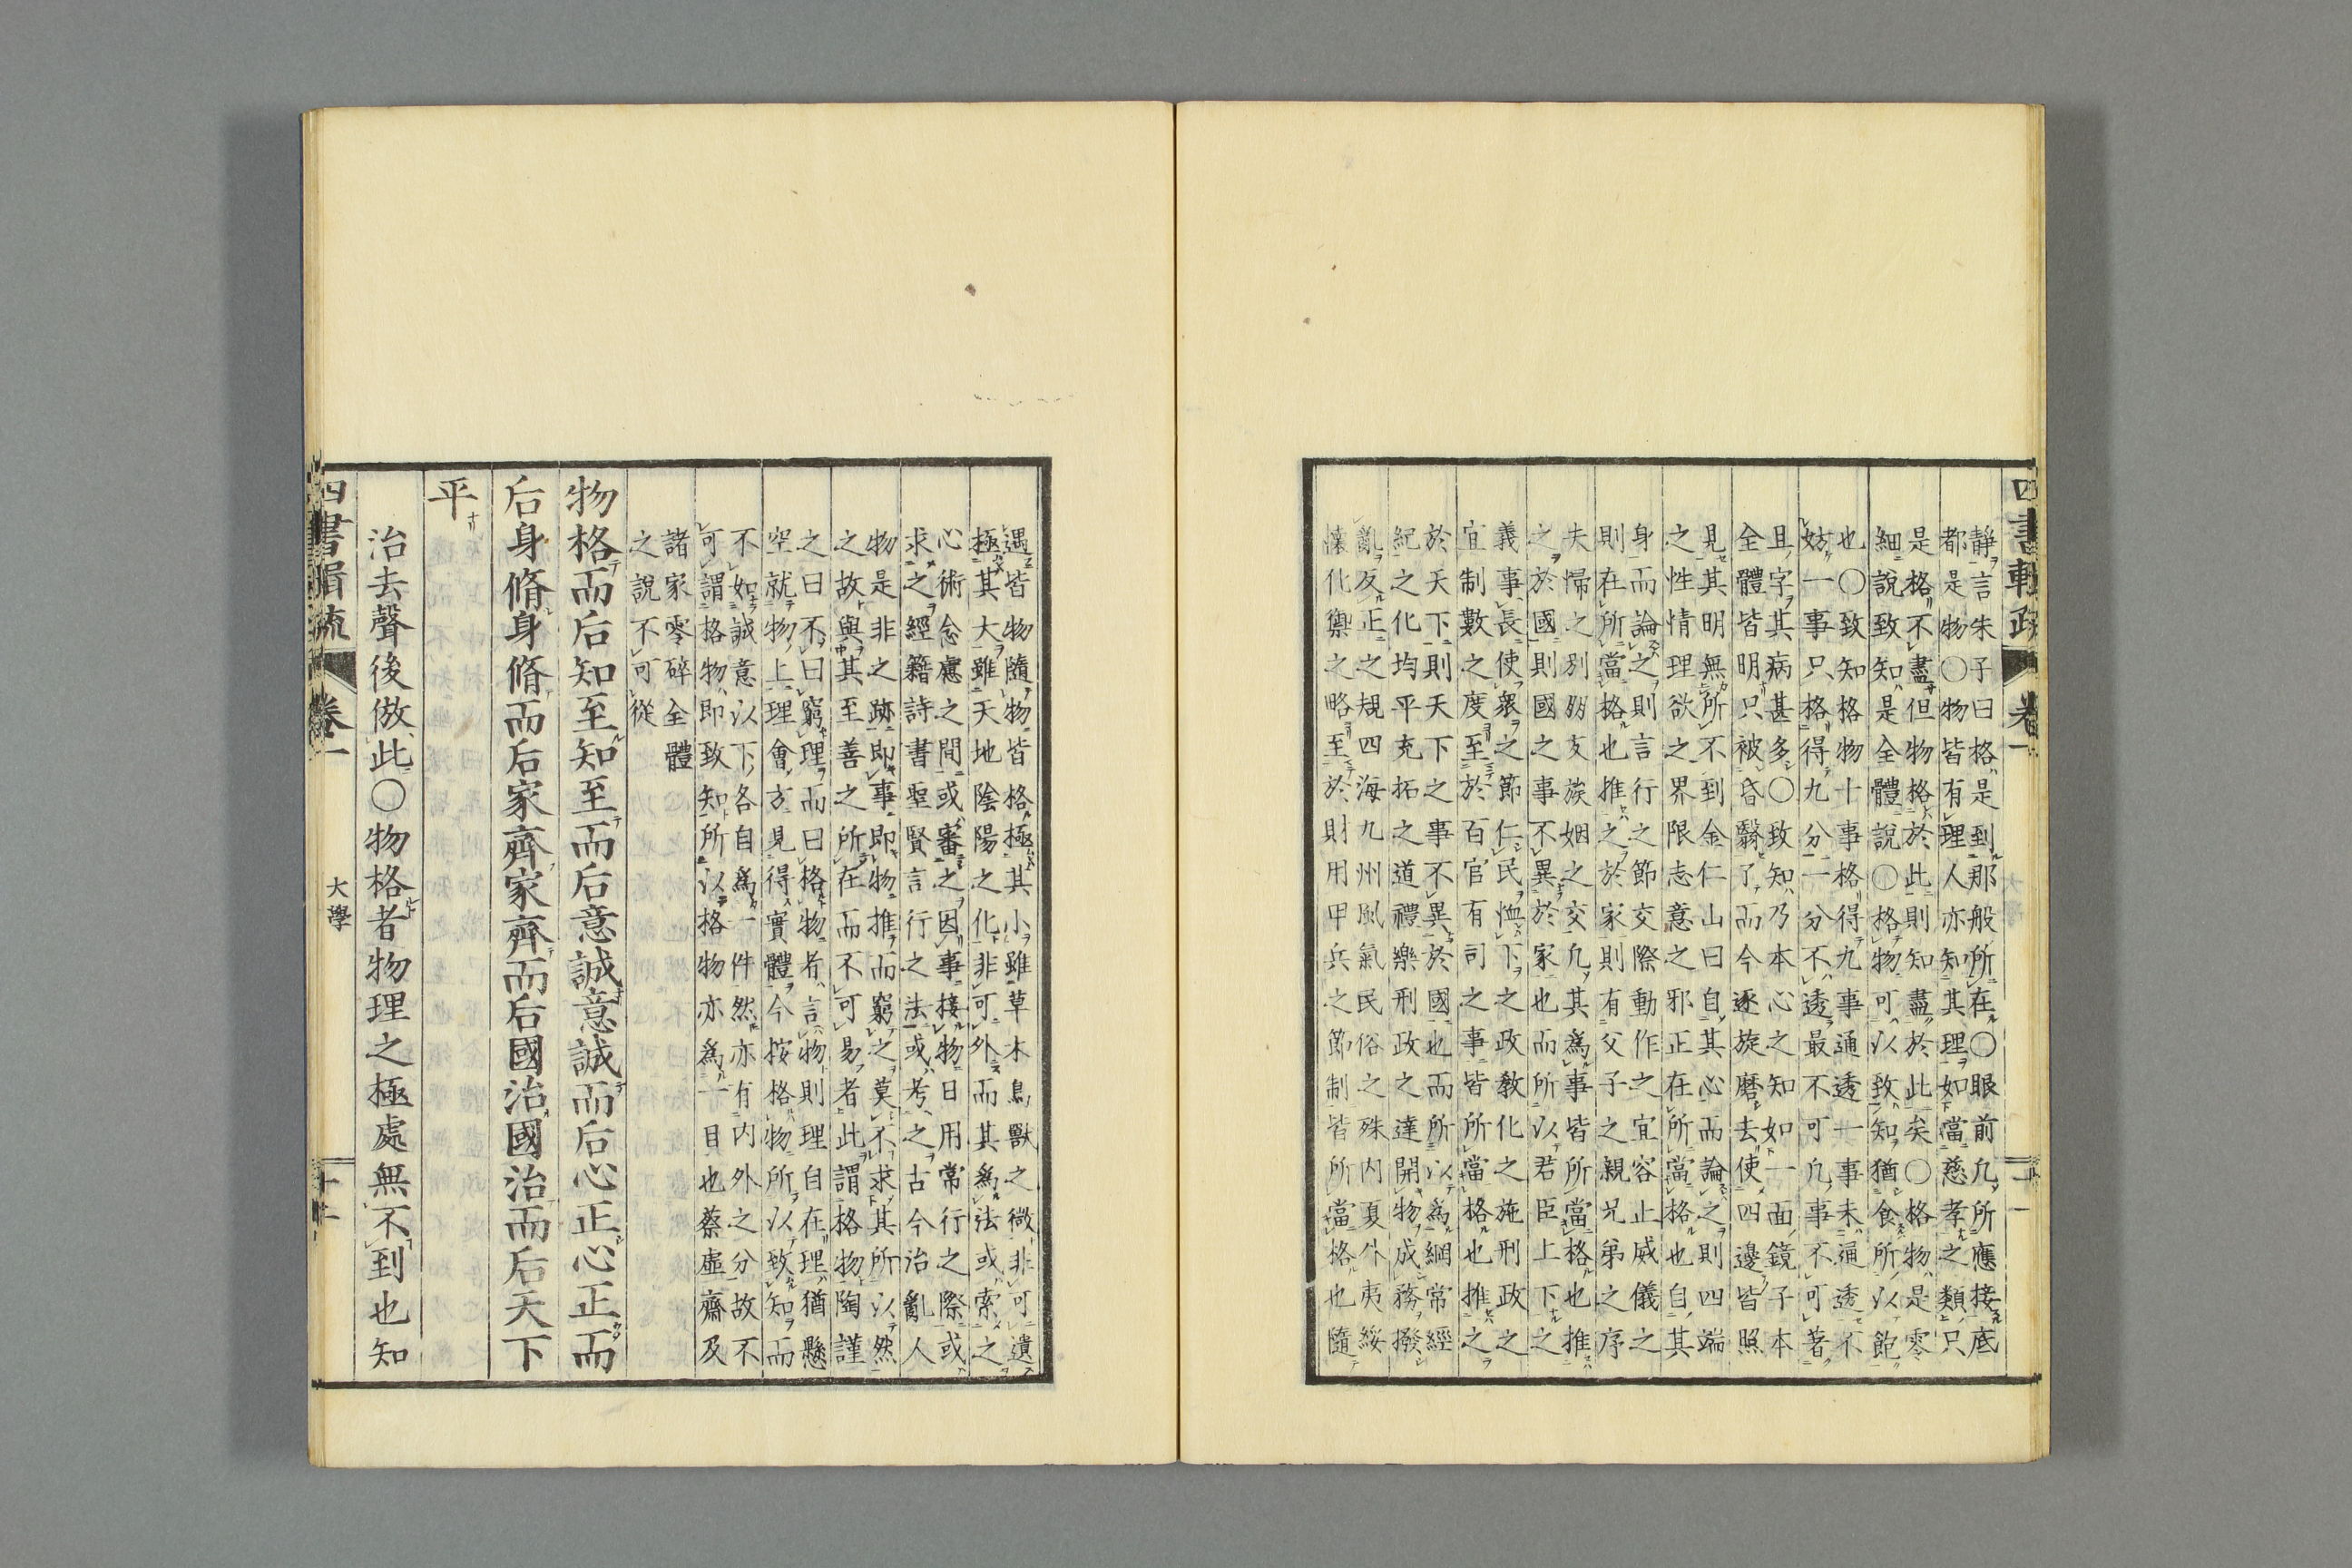 靜言朱子曰格是到那般所在○眼前凡所應接底
都是物○物皆有理人亦知其理如當慈孝之類只
是格不盡但物格於此則知盡於此矣○格物是零
細說致知是全體說○格物可以致知猶食所以飽
也○致知格物十事格得九事通透一事未通透不
妨一事只格得九分一分不透最不可凡事不可著
且字其病甚多○致知乃本心之知如一面鏡子本
全體皆明只被昏翳了而今逐旋磨去使四邊皆照
見其明無所不到金仁山曰自其心而論之則四端
之性情理欲之界限志意之邪正在所當格也自其
身而論之則言行之節交際動作之宜容止威儀之
則在所當格也推之於家則有父子之親兄弟之序
夫婦之別朋友族姻之交凡其為事皆所當格也推
之於國則國之事不異於家也而所以君臣上下之
義事長使衆之節仁民恤下之政教化之施刑政之
宜制數之度至於百官有司之事皆所當格也推之
於天下則天下之事不異於國也而所以為綱常經
紀之化均平充拓之道禮樂刑政之達開物成務撥
亂反正之規四海九州風氣民俗之殊內夏外夷綏
懷化禦之略至於財用甲兵之節制皆所當格也隨
四書輯疏 卷一
遇皆物隨物皆格極其小雖草木鳥獸之微非可遺
極其大雖天地陰陽之化非可外而其為法或索之
心術念慮之間或審之因事接物日用常行之際或
求之經籍詩書聖賢言行之法或考之古今治亂人
物是非之跡即事即物推而窮之莫不求其所以然
之故與其至善之所在而不可易者此謂格物陶謹
之曰不曰窮理而曰格物者言物則理自在理猶懸
空就物上理會方見得實體今按格物所以致知而
不如誠意以下各自為一件然亦有內外之分故不
可謂格物即致知所以格物亦為一目也蔡虛齋及
諸家零碎全體
之說不可從
物格而后知至知至而后意誠意誠而后心正心正而
后身脩身脩而后家齊家齊而后國治國治而后天下
平
治去聲後倣此○物格者物理之極處無不到也知
四書輯疏 卷一 大學 十二